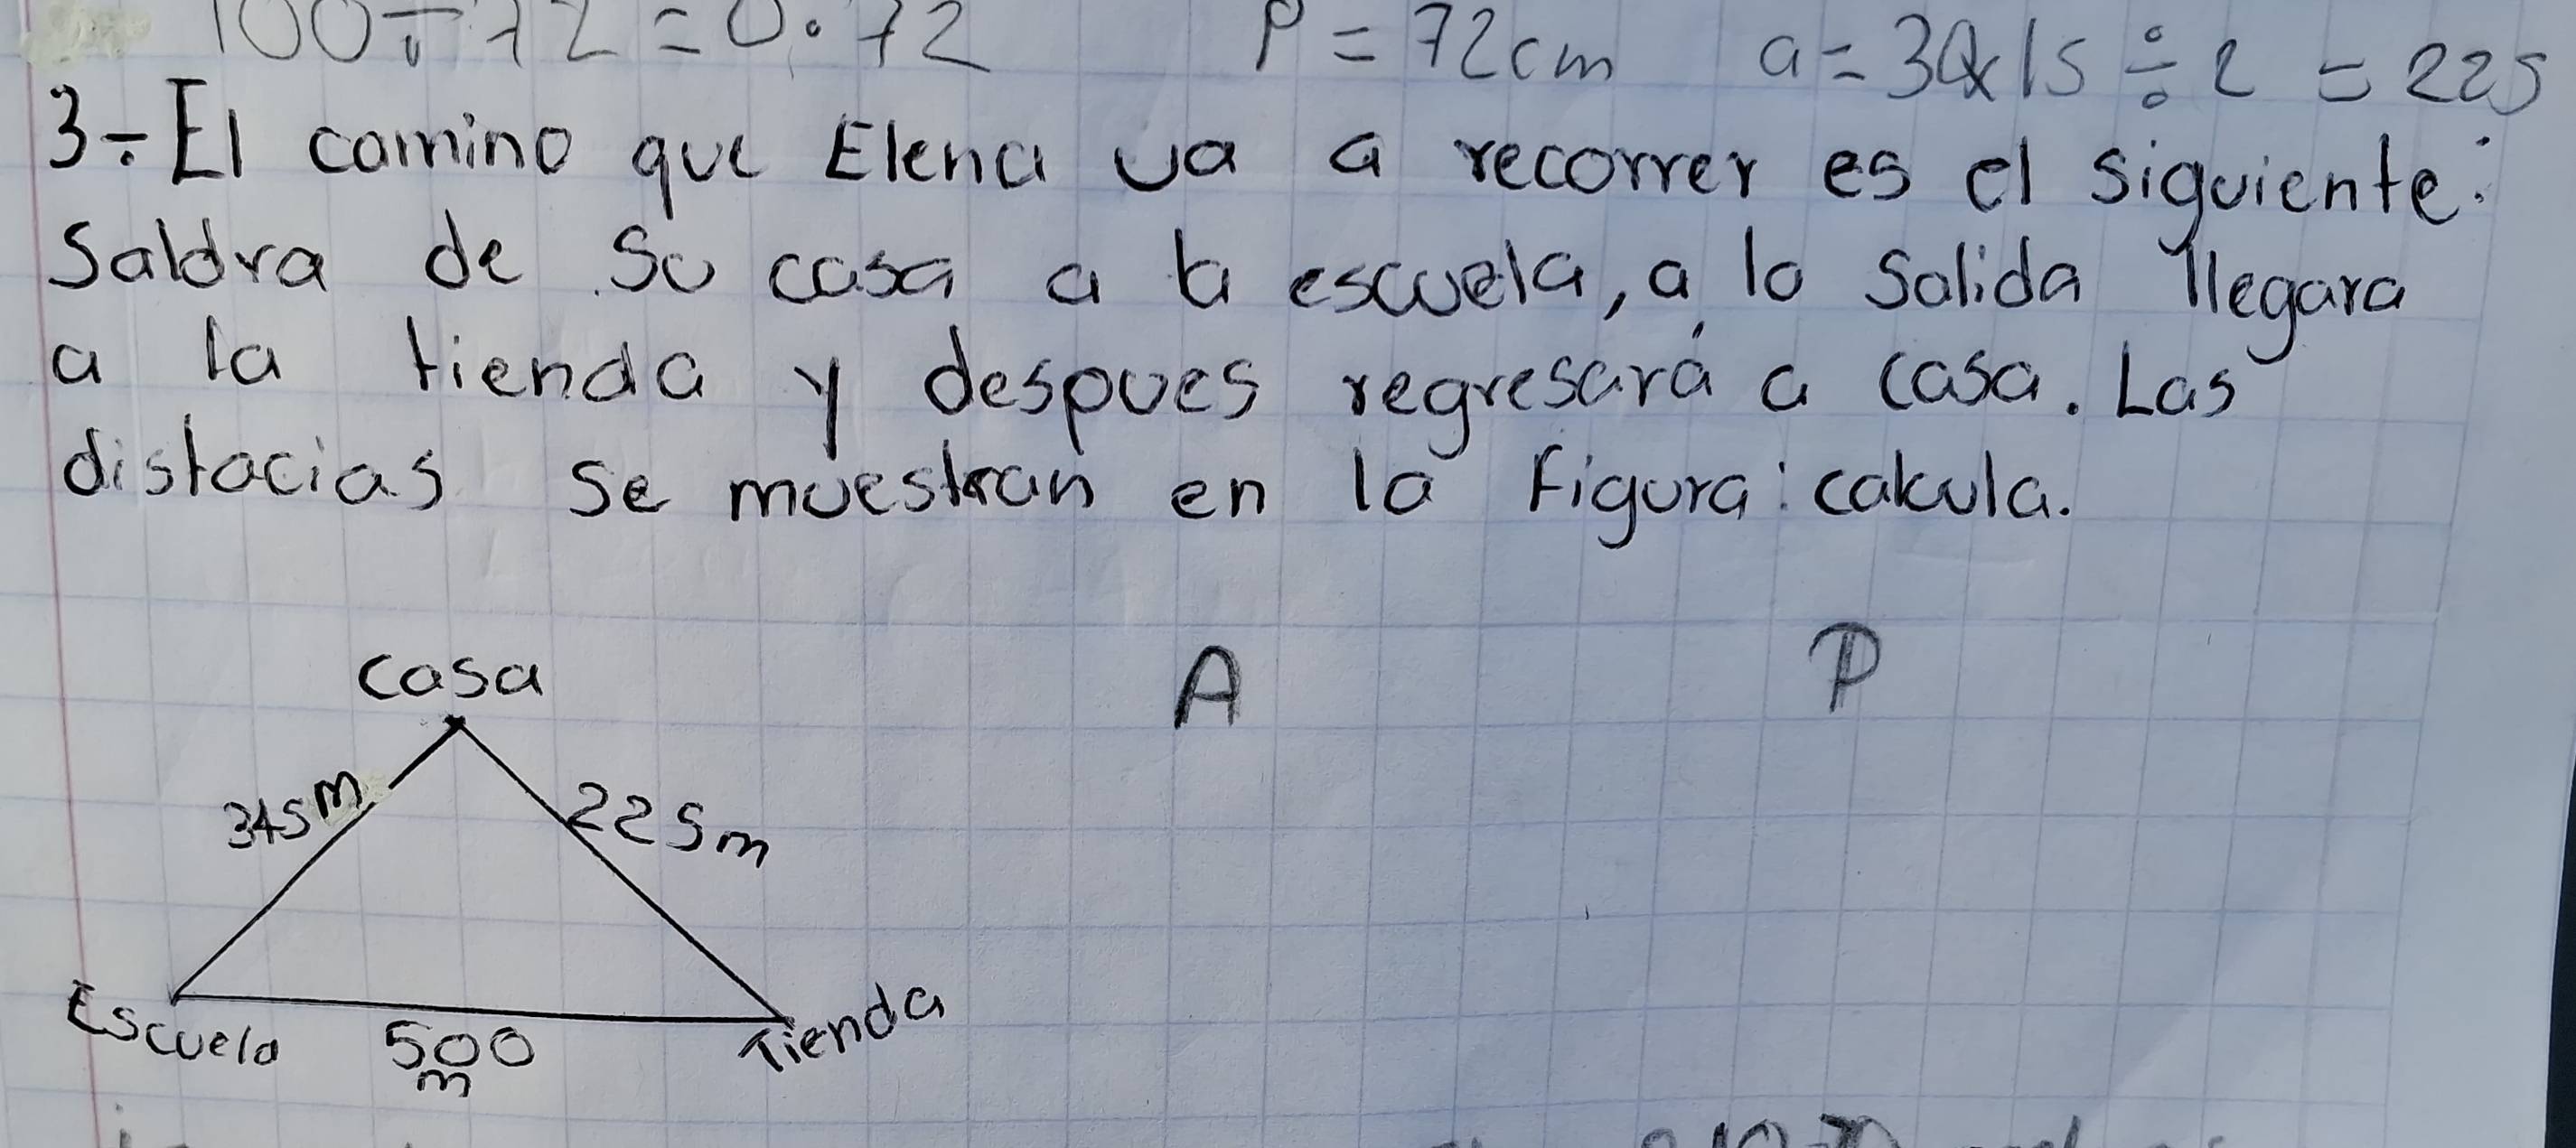 100÷72=0.72 P=72cm a=30x15÷2=225
3÷El camino que Elena va a recorrer es el siguiente:
Saldra de su casa a la escuela, a la salida llegara
a la tienda y despues regresará a casa. Las
distacias se muestran en la Figura: calcula.
A P
casa
345m 225m
Escuela 500 Tienda
m